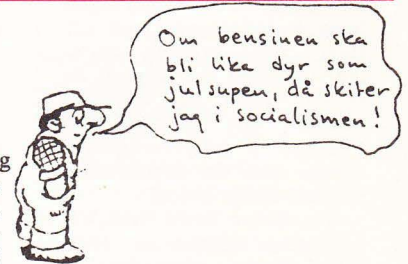 Om bensinen ska
bli lika dyr som
julsupen, då skiter
jag i socialismen!
g